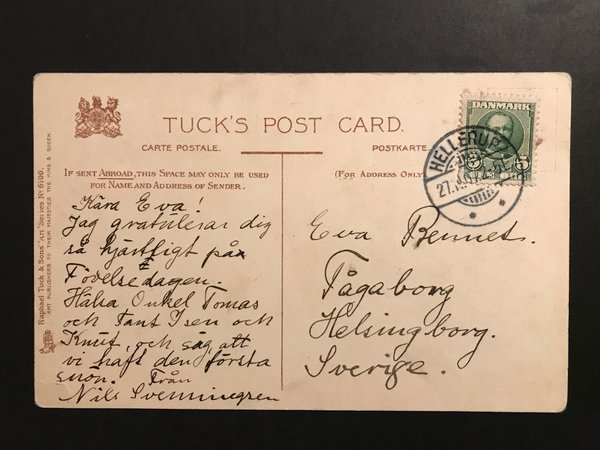 TUCK'S POST CARD.
CARTE POSTALE.
POSTKARTE.
IF SENT ABROAD, THIS SPACE MAY ONLY BE USED
FOR NAME AND ADDRESS OF SENDER.
(FOR ADDRESS ONLY
DANMARK
5
5
HELLERUP
27.
Kära Eva!
Jag gratulerar dig
så hjärtligt på
Födelsedagen.
Hälsa Onkel Tomas
och Tant Ysen och
Knut, och säg, att
vi haft den första
snön. Från
Nils Svenningsen
Eva Bennet.
Tågaborg
Helsingborg.
Sverige.
Raphael Tuck & Sons' "Art" Series No 6100.
ART PUBLISHERS TO THEIR MAJESTIES THE KING & QUEEN.